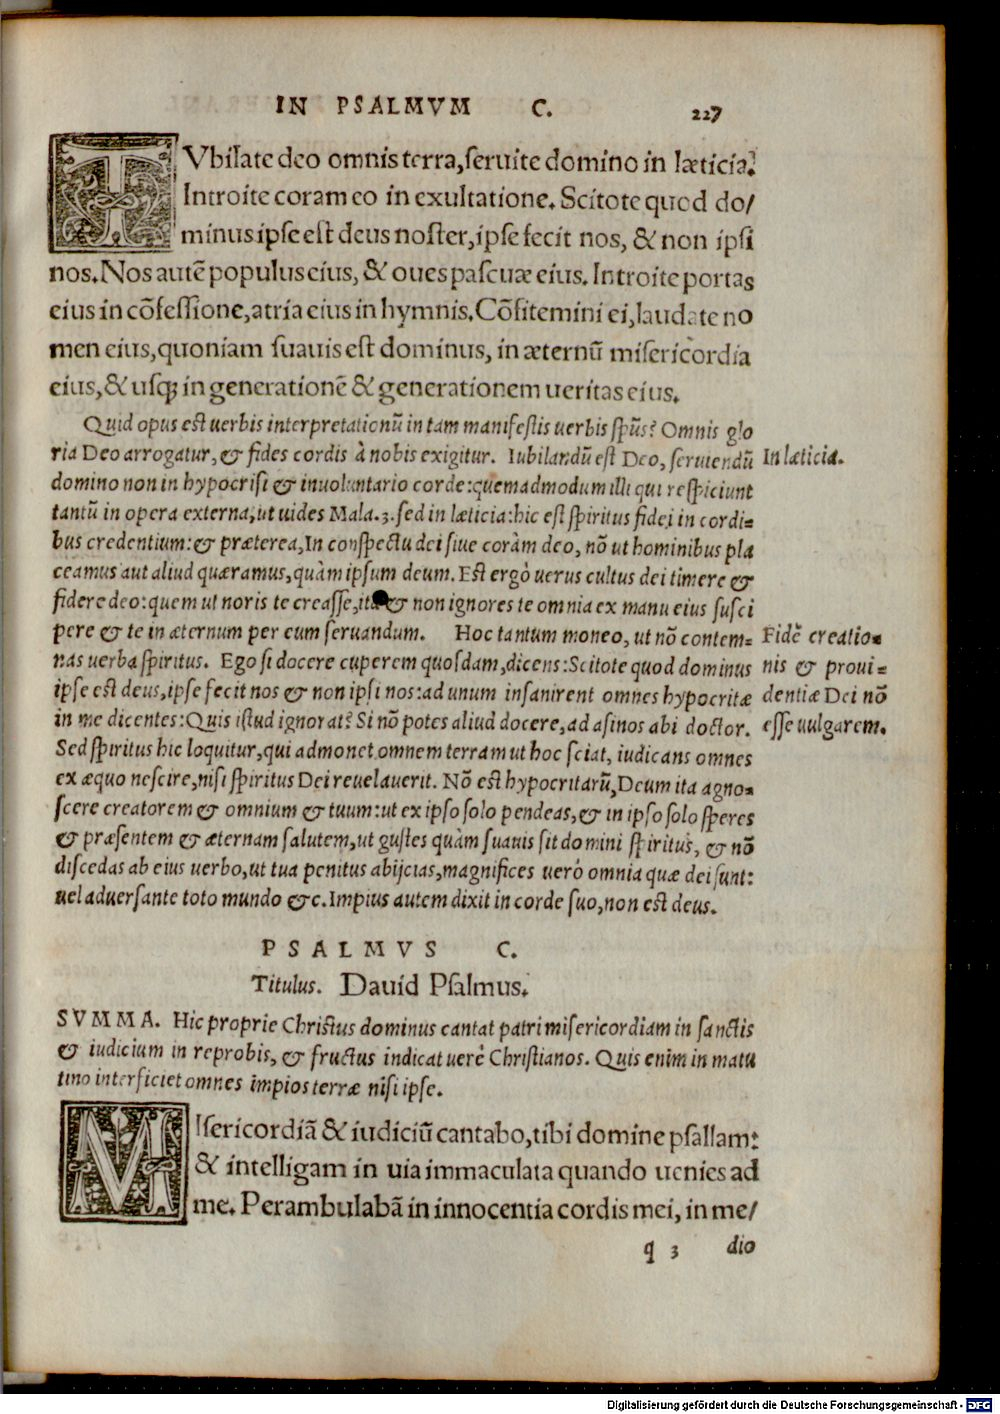 IN PSALMVM C. 227
IVbilate deo omnis terra, seruite domino in læticia.
Introite coram eo in exultatione. Scitote quod do/
minus ipse est deus noster, ipse fecit nos, & non ipsi
nos. Nos autẽ populus eius, & oues pascuæ eius. Introite portas
eius in cõfessione, atria eius in hymnis. Cõfitemini ei, laudate no
men eius, quoniam suauis est dominus, in æternũ misericordia
eius, & usq; in generationẽ & generationem ueritas eius.
Quid opus est uerbis interpretationũ in tam manifestis uerbis spũs? Omnis glo
ria Deo arrogatur, & fides cordis à nobis exigitur. Iubilandũ est Deo, seruiendũ
domino non in hypocrisi & inuoluntario corde: quemadmodum illi qui respiciunt
tantũ in opera externa, ut uides Mala. 3. sed in læticia: hic est spiritus fidei in cordi=
bus credentium: & præterea, In conspectu dei siue coràm deo, nõ ut hominibus pla
ceamus aut aliud quæramus, quàm ipsum deum. Est ergò uerus cultus dei timere &
fidere deo: quem ut noris te creasse, ita & non ignores te omnia ex manu eius susci
pere & te in æternum per eum seruandum. Hoc tantum moneo, ut nõ contem=
nas uerba spiritus. Ego si docere cuperem quosdam, dicens: Scitote quod dominus
ipse est deus, ipse fecit nos & non ipsi nos: ad unum insanirent omnes hypocritæ
in me dicentes: Quis istud ignorat? Si nõ potes aliud docere, ad asinos abi doctor.
Sed spiritus hic loquitur, qui admonet omnem terram ut hoc sciat, iudicans omnes
ex æquo nescire, nisi spiritus Dei reuelauerit. Nõ est hypocritarũ, Deum ita agno=
scere creatorem & omnium & tuum: ut ex ipso solo pendeas, & in ipso solo speres
& præsentem & æternam salutem, ut gustes quàm suauis sit domini spiritus, & nõ
discedas ab eius uerbo, ut tua penitus abijcias, magnifices uerò omnia quæ dei sunt:
uel aduersante toto mundo &c. Impius autem dixit in corde suo, non est deus.
In læticia.
Fidẽ creatio=
nis & proui=
dentiæ Dei nõ
esse uulgarem.
PSALMVS C.
Titulus. Dauid Psalmus.
SVMMA. Hic proprie Christus dominus cantat patri misericordiam in sanctis
& iudicium in reprobis, & fructus indicat uerè Christianos. Quis enim in matu
tino interficiet omnes impios terræ nisi ipse.
MIsericordiã & iudiciũ cantabo, tibi domine psallam:
& intelligam in uia immaculata quando uenies ad
me. Perambulabã in innocentia cordis mei, in me/
q 3 dio
Digitalisierung gefördert durch die Deutsche Forschungsgemeinschaft - DFG